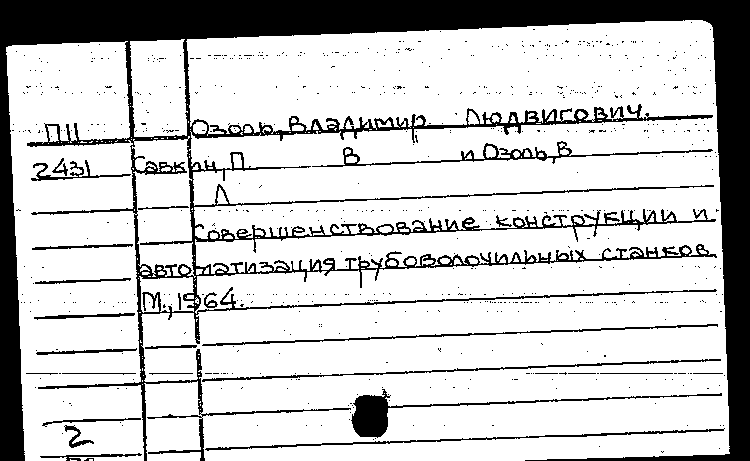 П11 Озоль, Владимир Людвигович.
2431 Савкин, П. В и Озоль, В
Л
Совершенствование конструкции и
автоматизация трубоволочильных станков
М., 1964.
2